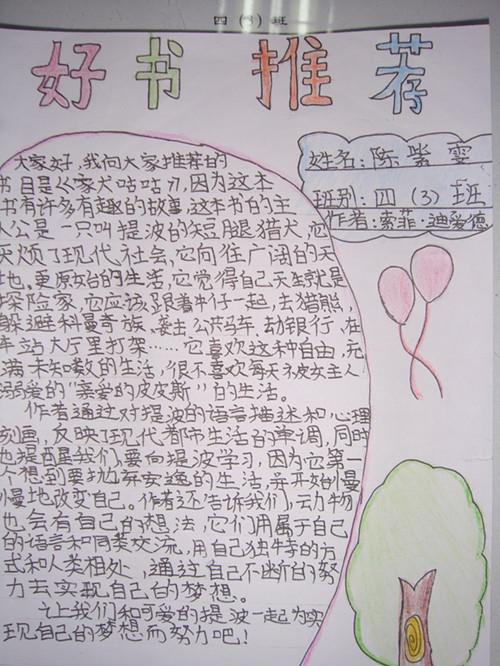 四 (3) 班
好书推荐
姓名:陈紫雯
班别:四(3)班
作者:索菲·迪爱德
大家好,我向大家推荐的
书目是《家犬咕咕》,因为这本
书有许多有趣的故事,这本书的主
人公是一只叫提波的短腿猎犬,它
厌烦了现代社会,它向往广阔的天
地。更原始的生活,它觉得自己天生就是
探险家,它应该跟着牛仔一起,去猎熊,
躲避科曼奇族、公共马车、劫银行,在
车站大厅里打架……它喜欢这种自由,充
满未知数的生活,很不喜欢每天被女主人
溺爱的“亲爱的皮皮斯”的生活。
作者通过对提波的语言描述和心理
刻画,反映了现代都市生活的单调,同时
也提醒我们,要向提波学习,因为它第一
个想到要抛弃安逸的生活,并开始慢
慢地改变自己。作者还告诉我们,动物
也会有自己的想法,它们用属于自己
的语言和同类交流,用自己独特的方
式和人类相处,通过自己不断的努
力去实现自己的梦想。
让我们和可爱的提波一起为实
现自己的梦想而努力吧!